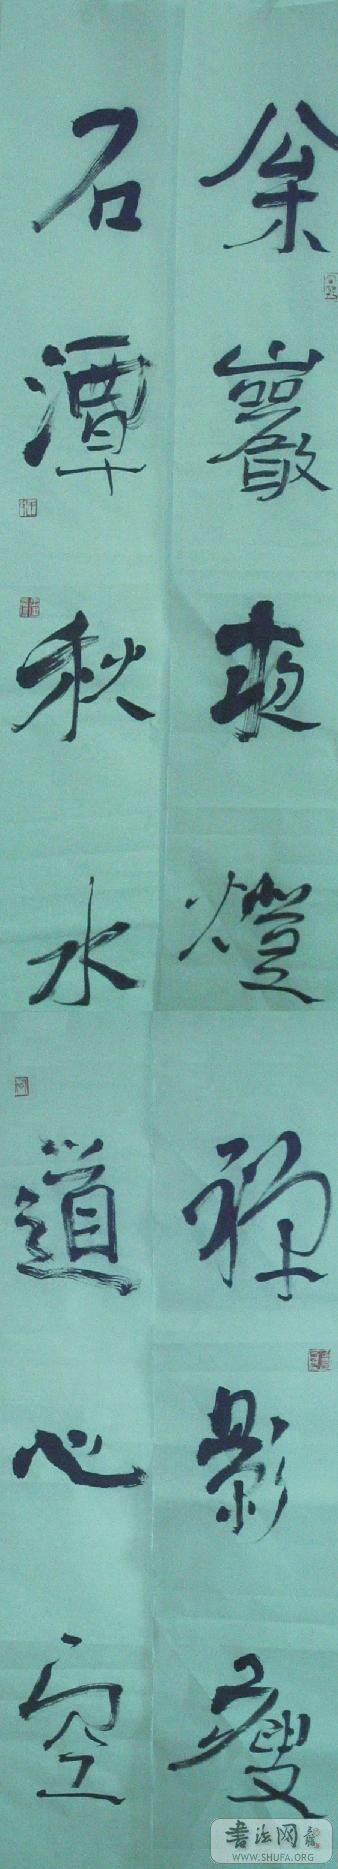 松巖夜燈禪影瘦
石潭秋水道心空
書法网
WWW.SHUFA.ORG